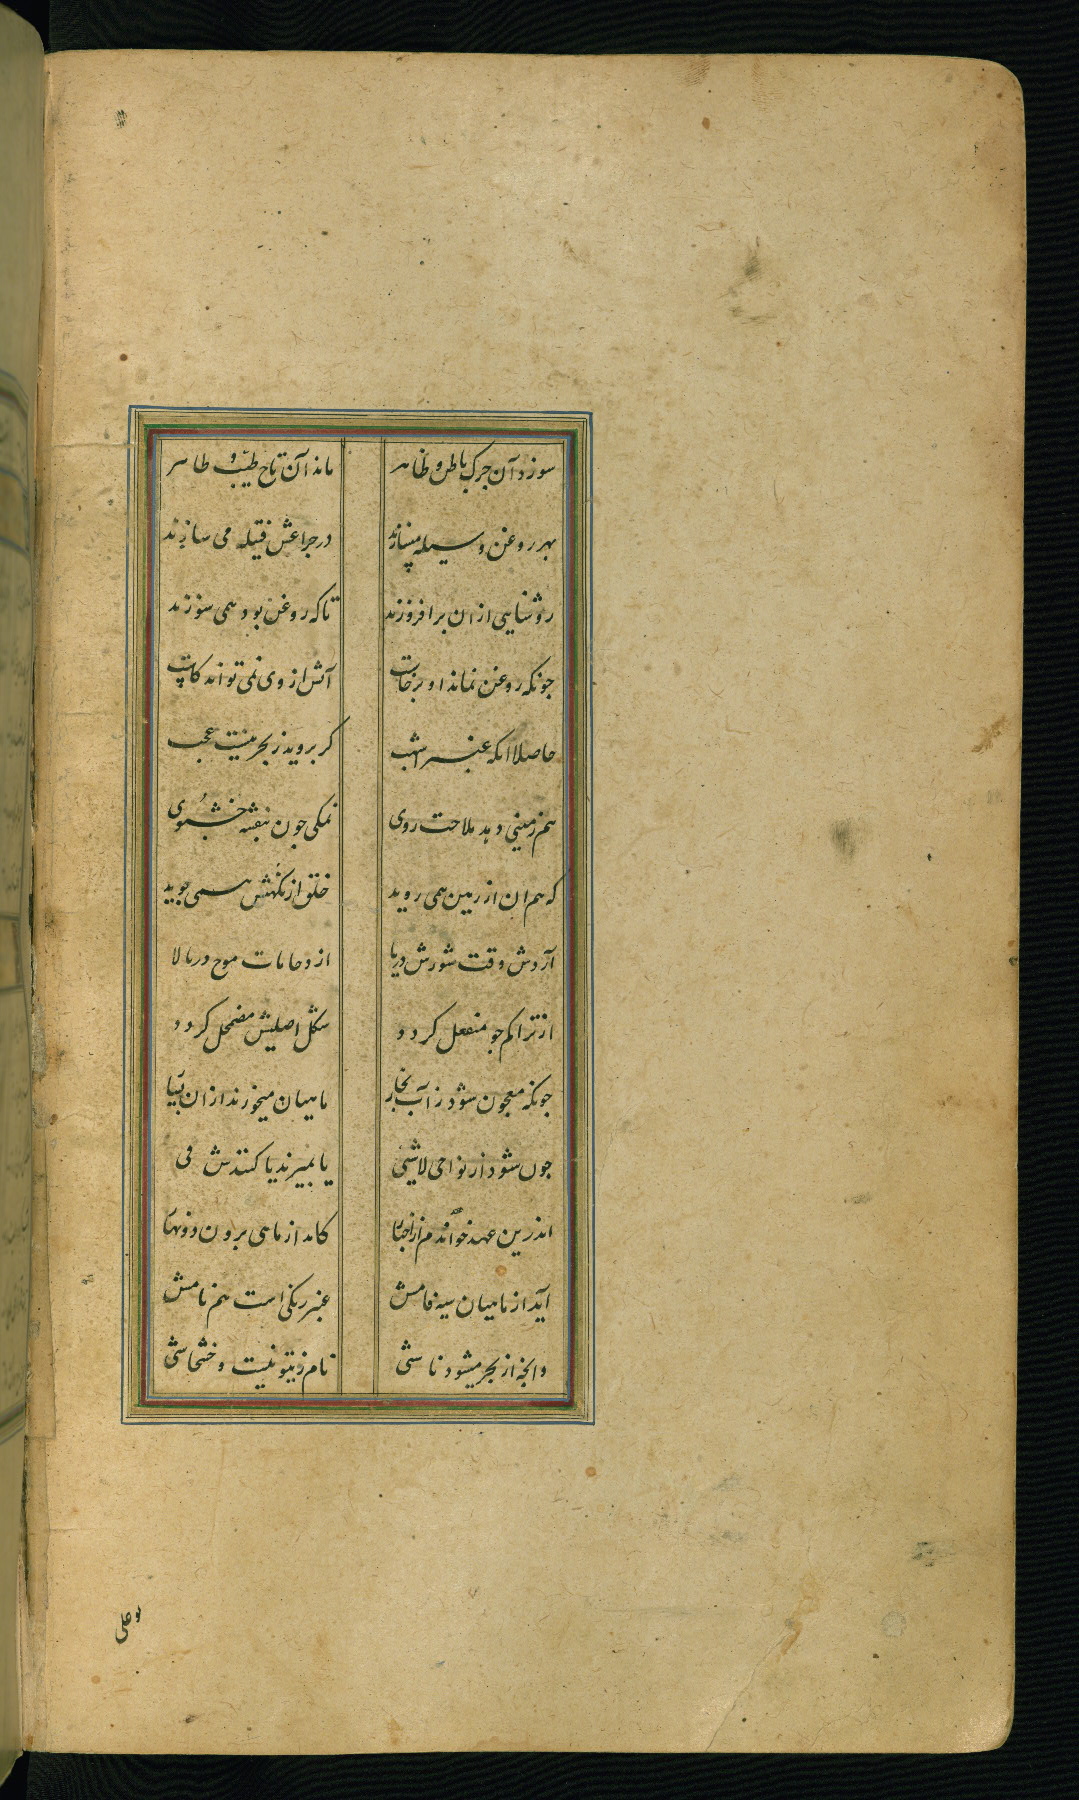 سوزد آن جرک باطن و ظاهر ماند آن تاج طیّب و طاهر
بهر روغن وسیله میسازند در جراغش فتیله می سازند
روشنایی ازان برافروزند تا که روغن بود همی سوزند
جونکه روغن نماند او برخاست آتش از وی نمی تواند کاست
حاصلا انکه عنبر اشهب کر بروید ز بحر نیست عجب
هم زمینی دهد ملاحت روی نمکی جون بنفشه خشبوی
که هم ان از زمین همی روید خلق از نکهتش همی جوید
آردش وقت شورش دریا از دخانات موج در بالا
از تراکم جو منفعل کردد شکل اصلیش مضمحل کردد
جونکه معجون شود ز آب بخار ماهیان میخورند ازان
جون شود از نواحی لاشی یا بمیرند یا کنندش قی
اندرین عهد خوانده‌ام کاید از ماهی برون
آید از ماهیان سیه فامش عنبر رنکی است هم نامش
وانجه از بحر میشود ناشی نام زیتونیست و خشخاشی
بوعلی